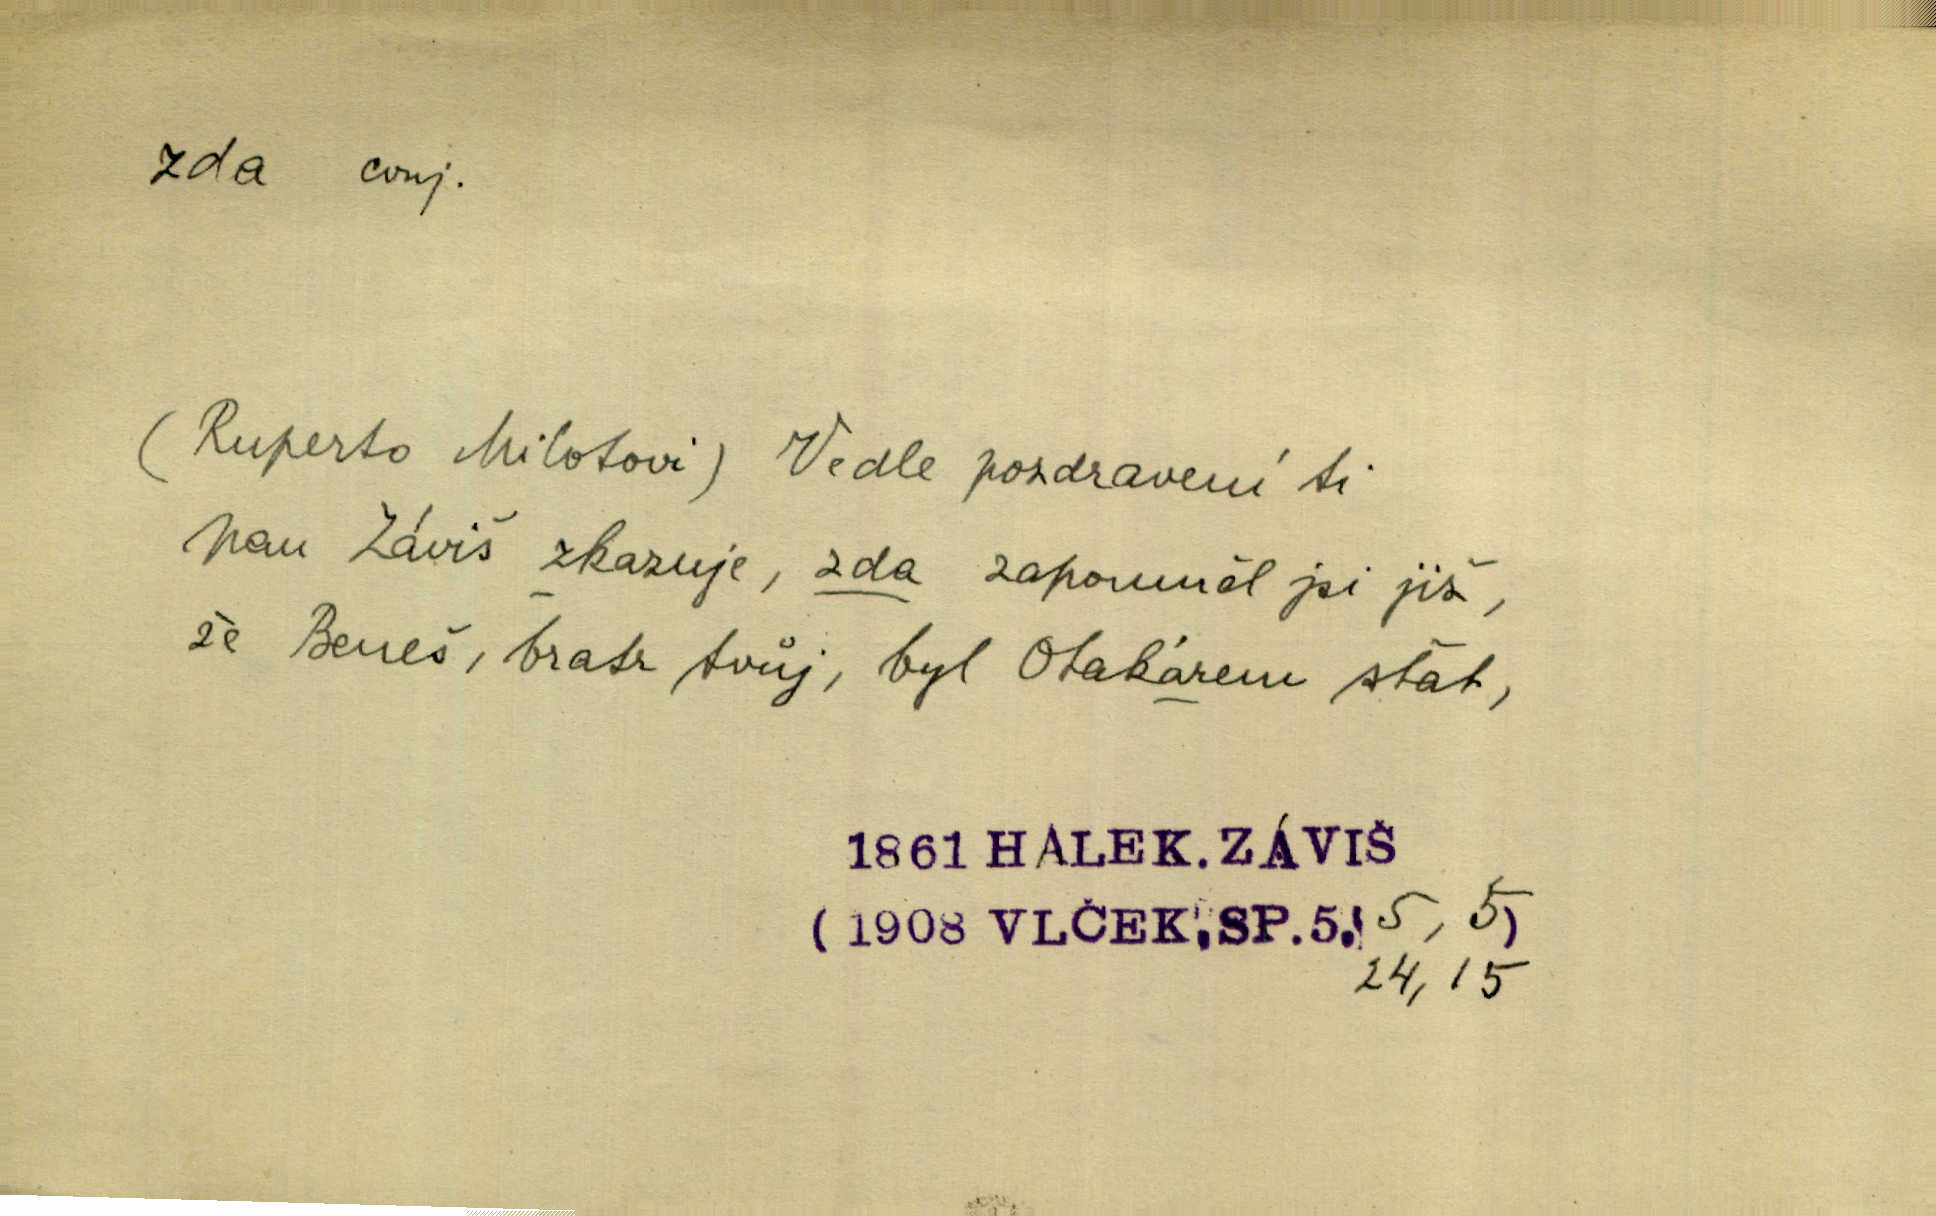 zda conj.
(Ruperto Milotovi) Vedle pozdravení ti
pan Záviš zkazuje, zda zapomněl jsi již,
že Beneš, bratr tvůj, byl Otakárem stat,
1861 HALEK. ZÁVIŠ
(1908 VLČEK, SP. 5, 5, 5)
24, 15